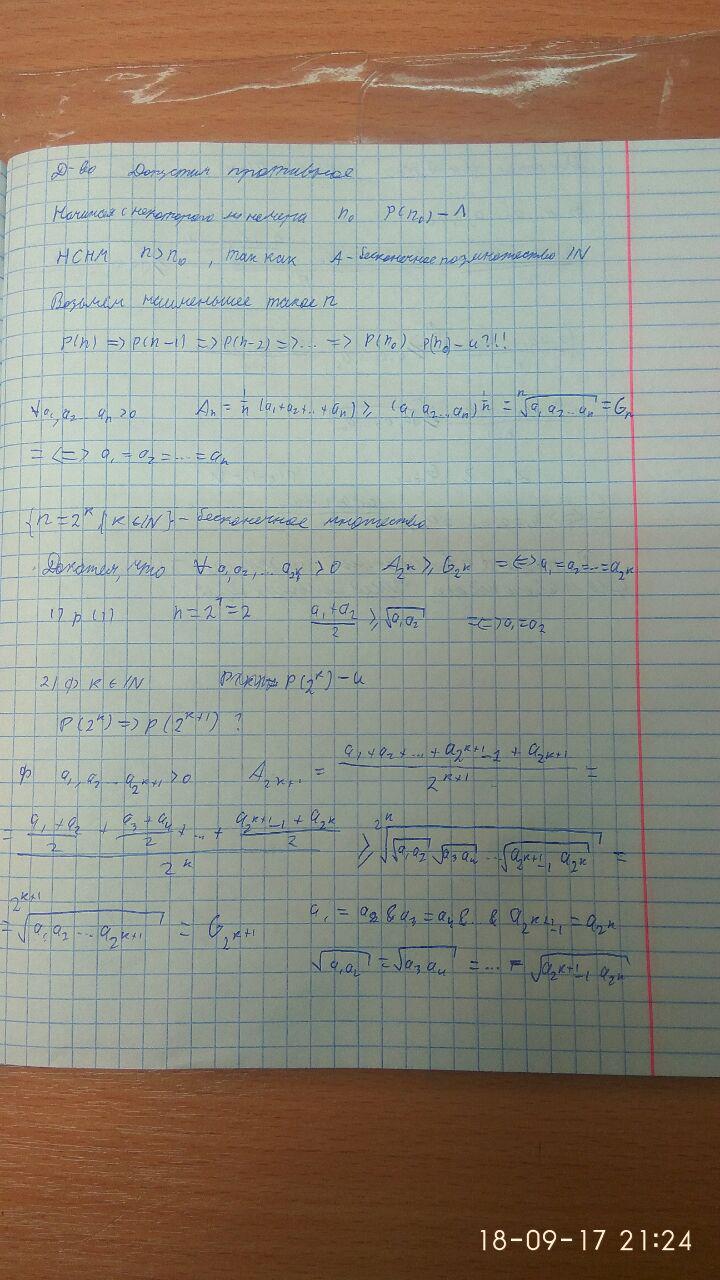 Д-во Допустим противное
Начиная с некоторого номера n₀ P(n₀) – Л
НСНМ n>n₀, так как A – бесконечное подмножество ℕ
Возьмём наименьшее такое n
P(n) => P(n-1) => P(n-2) => ... => P(n₀) P(n₀) – и ?!!!
∀a₁,a₂...aₙ>0 Aₙ = 1/n (a₁+a₂+...+aₙ) ⩾ (a₁ a₂...aₙ)^(1/n) = ⁿ√(a₁ a₂...aₙ) = Gₙ
= <=> a₁=a₂=...=aₙ
{n=2^k | k∈ℕ} – бесконечное множество
Докажем, что ∀ a₁a₂...a_{2^k} >0 A_{2^k} ⩾ G_{2^k} = <=> a₁=a₂=...=a_{2^k}
1) P(1) n=2¹=2 (a₁+a₂)/2 ⩾ √(a₁a₂) = <=> a₁=a₂
2) Ф k∈ℕ P(2^k) – и
P(2^k) => P(2^{k+1}) ?
Ф a₁,a₃...a_{2^{k+1}} >0 A_{2^{k+1}} = (a₁+a₂+...+a_{2^{k+1}-1} + a_{2^{k+1}})/2^{k+1} =
= ((a₁+a₂)/2 + (a₃+a₄)/2 +...+ (a_{2^{k+1}-1} + a_{2^k})/2)/2^k ⩾ ^{2^k}√(√(a₁a₂) √(a₃a₄) ... √(a_{2^{k+1}-1} a_{2^k})) =
= ^{2^{k+1}}√(a₁a₂...a_{2^{k+1}}) = G_{2^{k+1}} a₁=a₂ & a₃=a₄ &.. & a_{2^{k+1}-1} = a_{2^k}
√(a₁a₂) = √(a₃a₄) = ... = √(a_{2^{k+1}-1} a_{2^k})
18-09-17 21:24